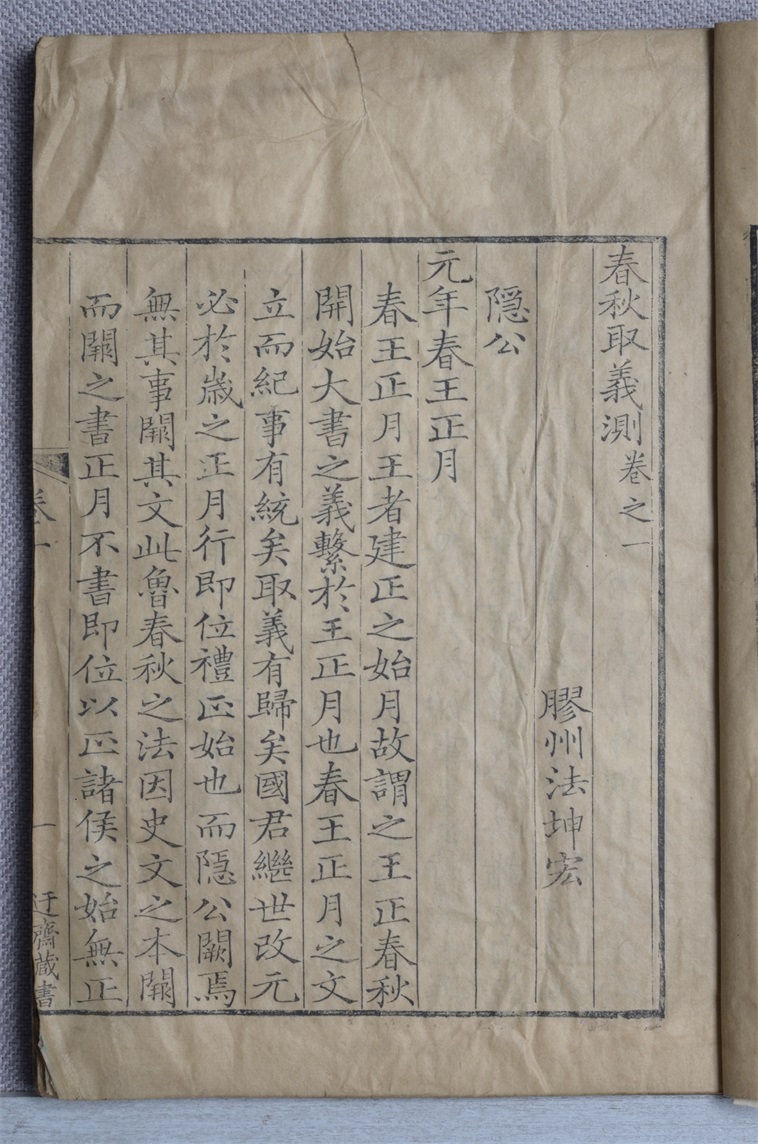 春秋取義測卷之一
膠州法坤宏
隠公
元年春王正月
春王正月王者建正之始月故謂之王正春秋
開始大書之義繫於王正月也春王正月之文
立而紀事有統矣取義有歸矣國君繼世改元
必於歳之正月行即位禮正始也而隠公闕焉
無其事闕其文此魯春秋之法因史文之本闕
而闕之書正月不書即位以正諸侯之始無正
卷一
一
迂齋藏書